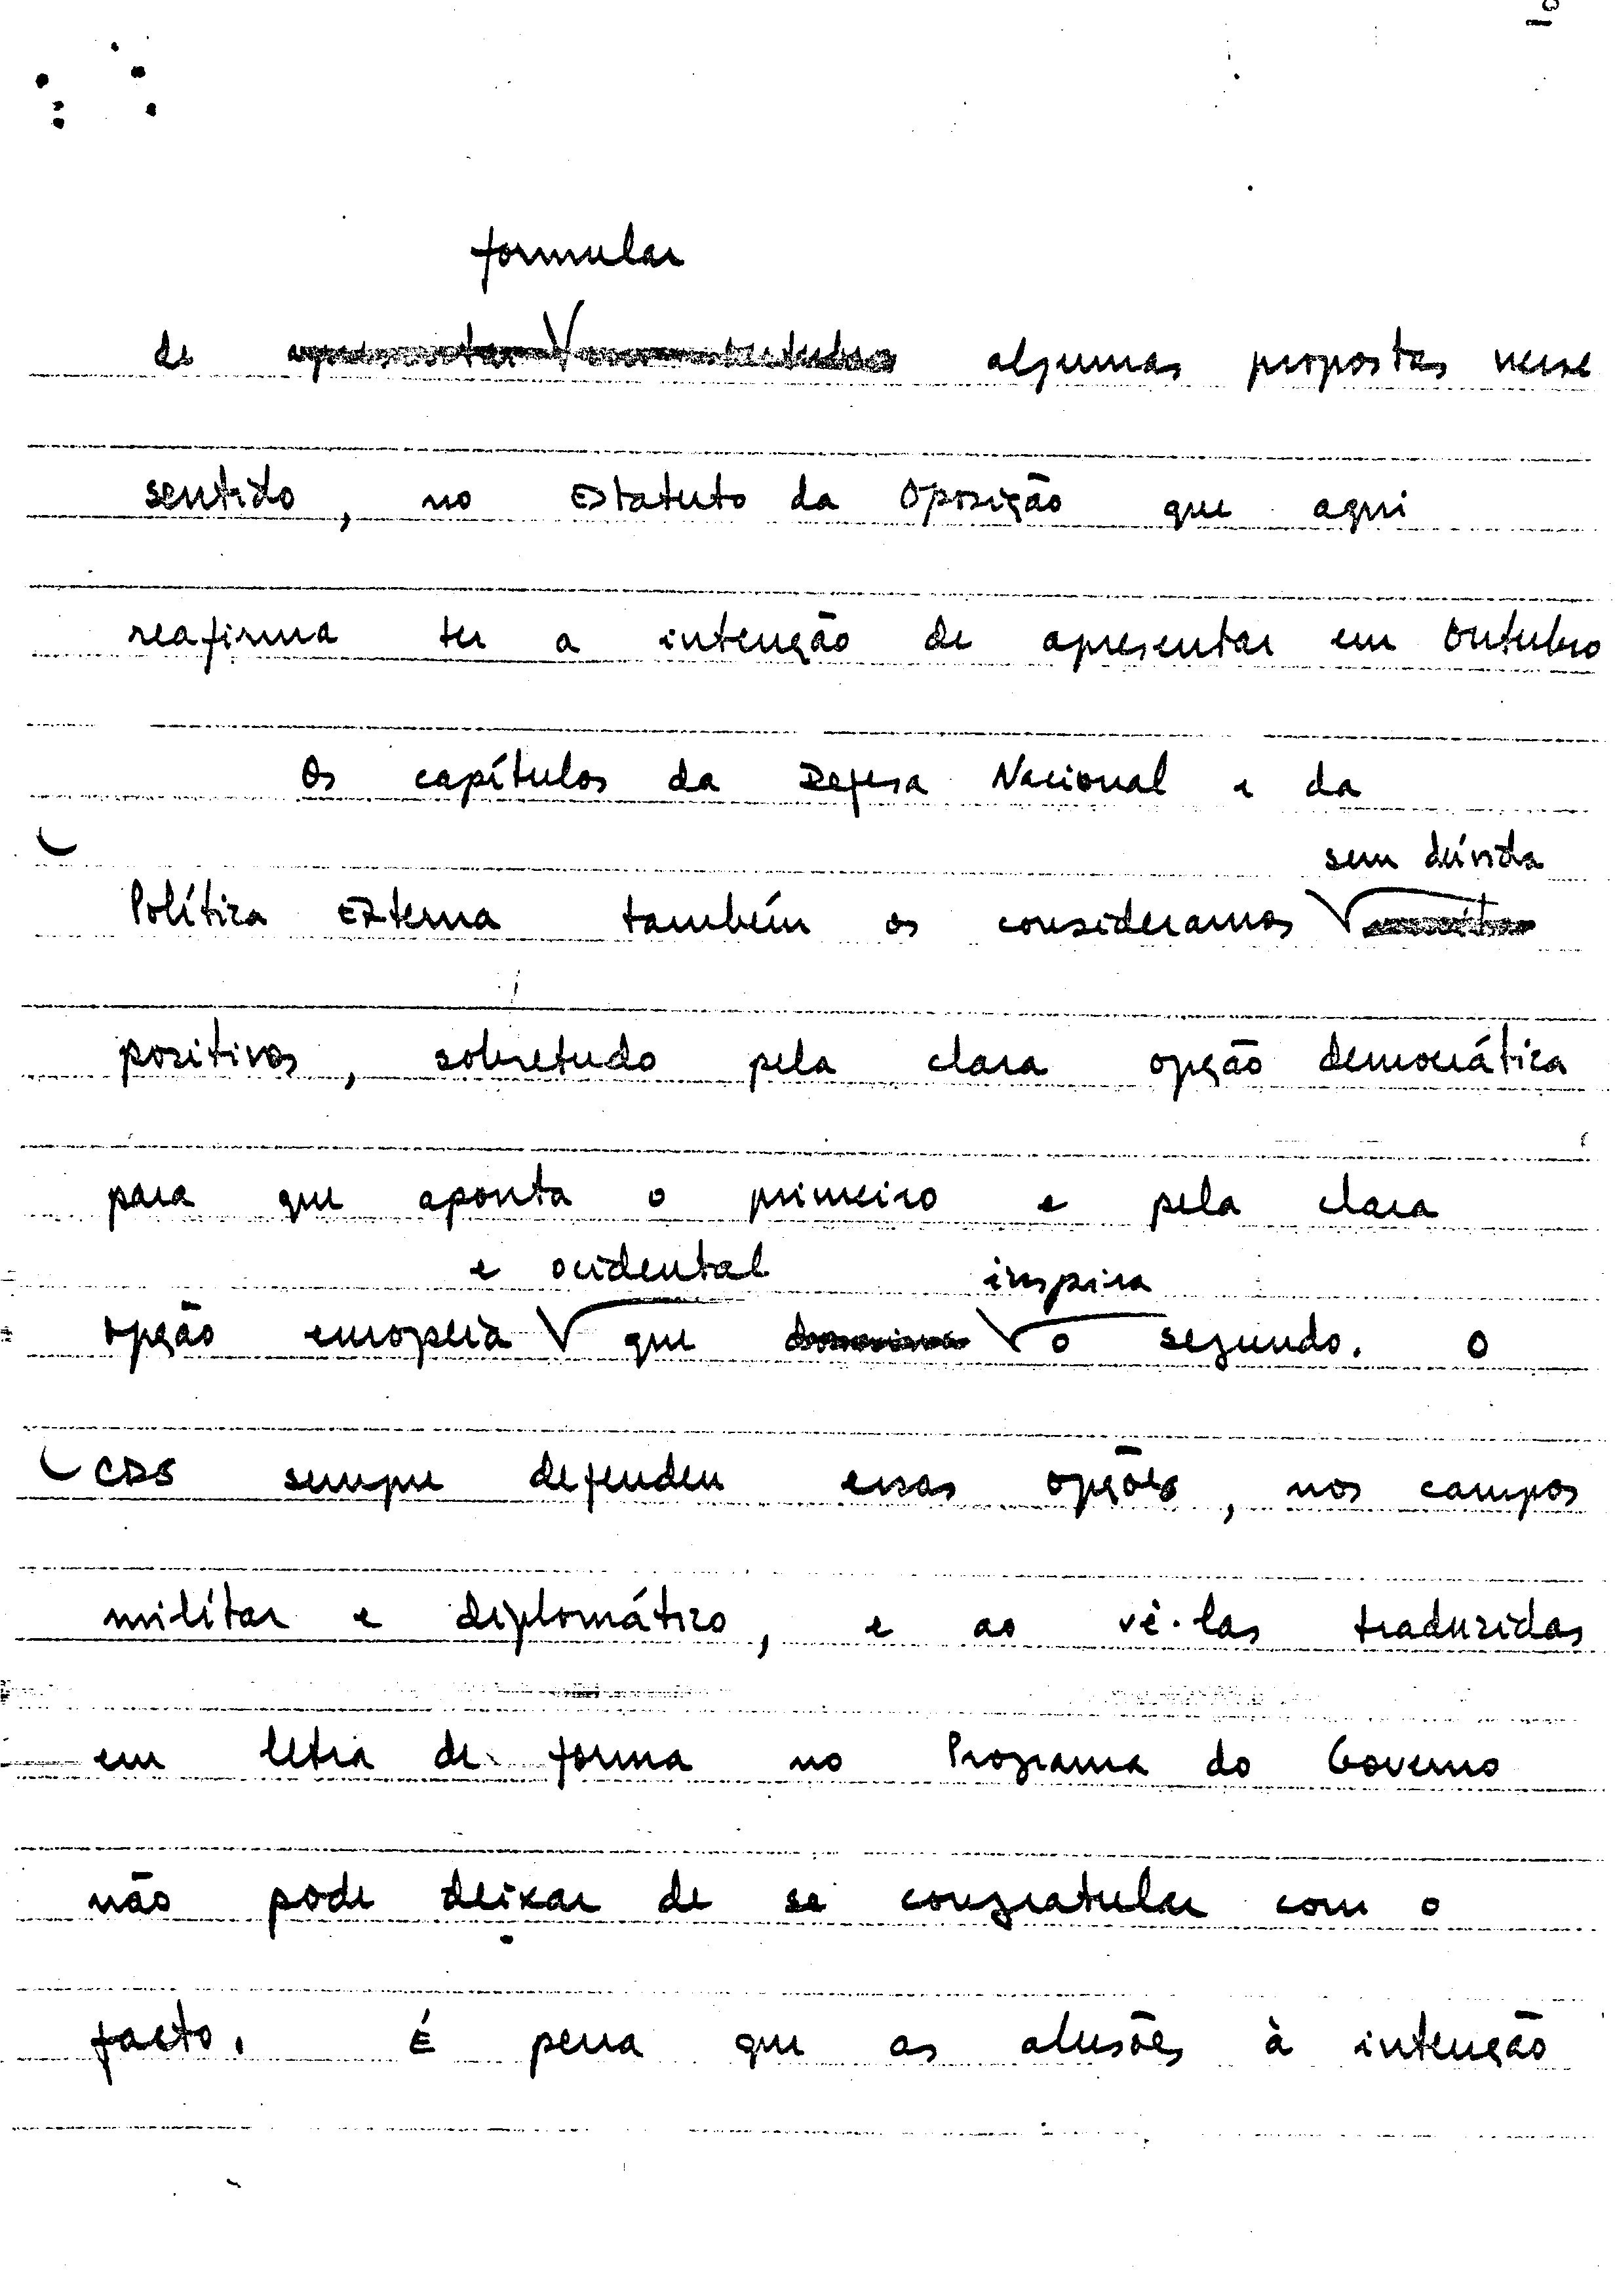 formular
de algumas propostas nesse
sentido, no Estatuto da Oposição que aqui
reafirma ter a intenção de apresentar em Outubro
Os capítulos da Defesa Nacional e da
sem dúvida
Política Externa também os consideramos
positivos, sobretudo pela clara opção democrática
para que aponta o primeiro e pela clara
e ocidental inspira
opção europeia que o segundo. O
CDS sempre defendeu essas opções, nos campos
militar e diplomático, e ao vê-las traduzidas
em letra de forma no Programa do Governo
não pode deixar de se congratular com o
facto. É pena que as alusões à intenção